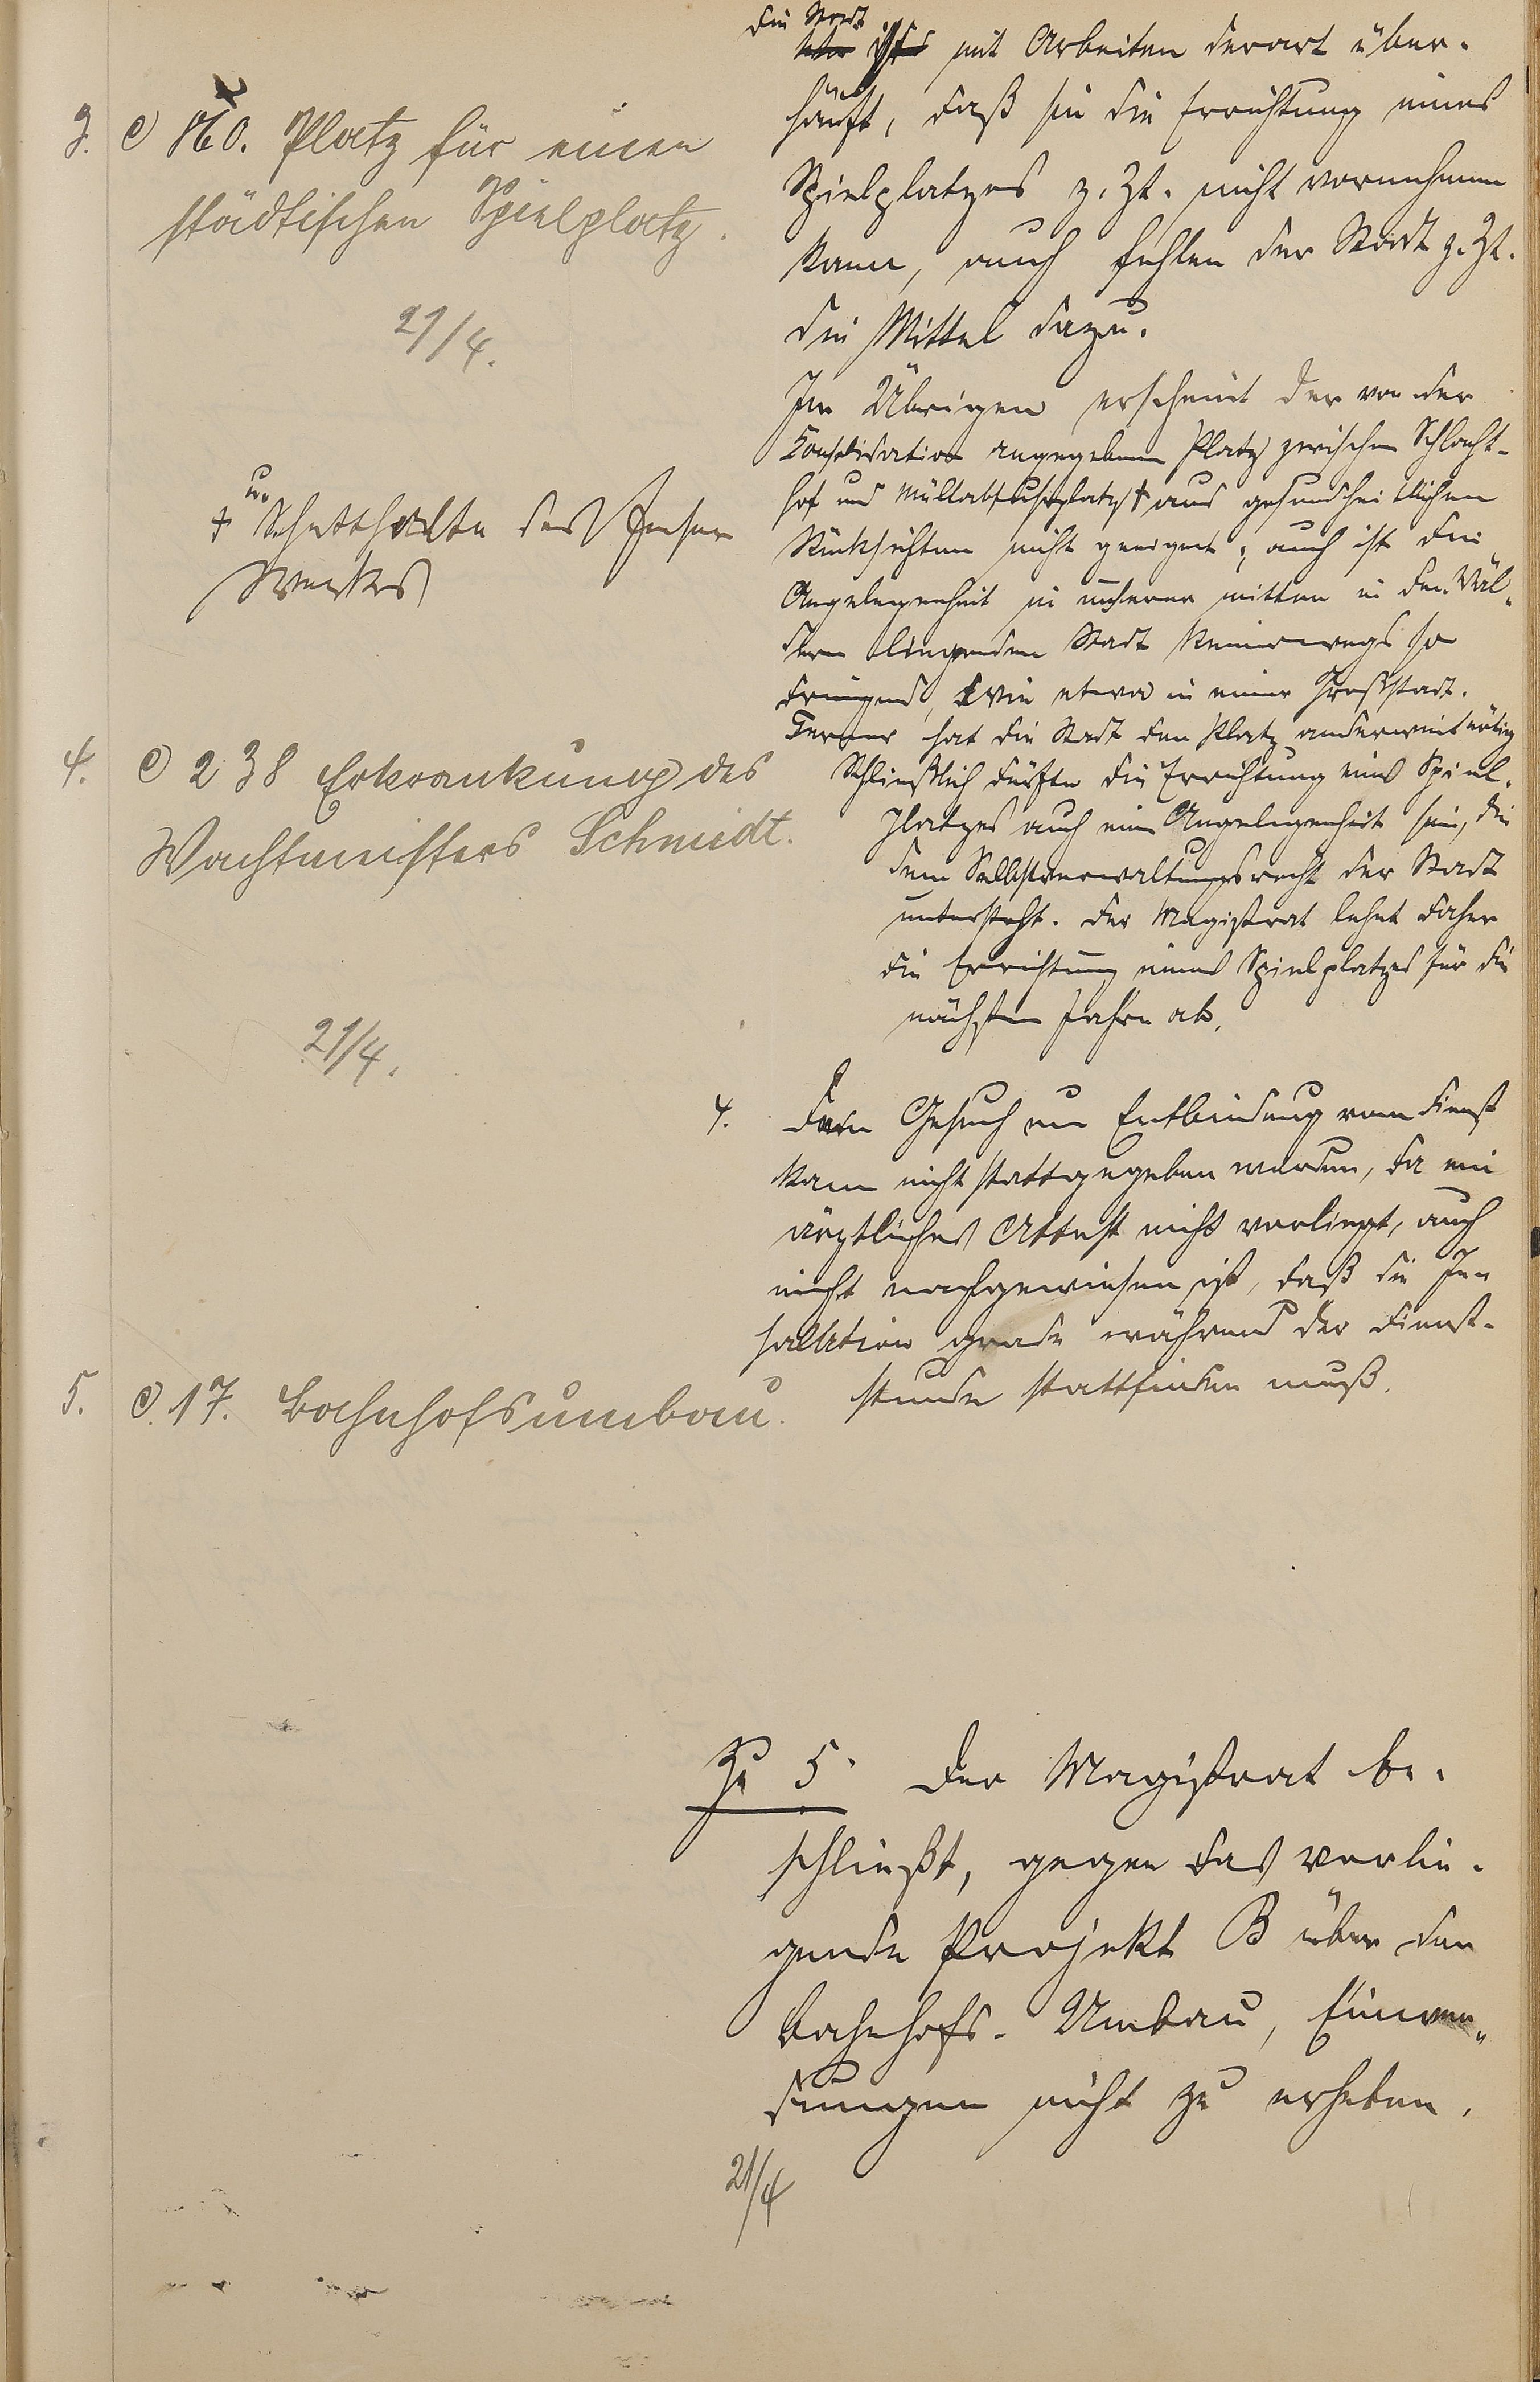 3. C 160. Platz für einen
städtischen Spielplatz.
21/4.
Die Stadt
ist mit Arbeiten derart über-
häuft, daß sie die Errichtung eines
Spielplatzes z. Zt. nicht vornehmen
kann, auch fehlen der Stadt z. Zt.
die Mittel dazu.
Im Übrigen erscheint der von der
Konsolidation angegebene Platz zwischen Schlacht-
hof und Müllabfuhrplatz + aus gesundheitlichen
Rücksichten nicht geeignet; auch ist die
Angelegenheit in unserer mitten in den Wäl-
dern liegenden Stadt keineswegs so
dringend, wie etwa in einer Großstadt.
Ferner hat die Stadt den Platz anderweit nötig
Schließlich dürfte die Errichtung eines Spiel-
platzes auch eine Angelegenheit sein, die
dem Selbstverwaltungsrecht der Stadt
untersteht. Der Magistrat lehnt daher
die Errichtung eines Spielplatzes für die
nächsten Jahre ab.
+ u. Schutthalde des
Werkes
4. C 238 Erkrankung des
Wachtmeisters Schmidt.
21/4.
4. Dem Gesuch um Entbindung vom Dienst
kann nicht stattgegeben werden, da ein
ärztliches Attest nicht vorliegt, auch
nicht nachgewiesen ist, daß die In
halation grade während der Dienst-
stunde stattfinden muß.
5. C. 17. Bahnhofsumbau.
Zu 5. Der Magistrat be-
schließt, gegen das vorlie-
gende Projekt B über den
Bahnhofs-Umbau, Einwen-
dungen nicht zu erheben.
21/4